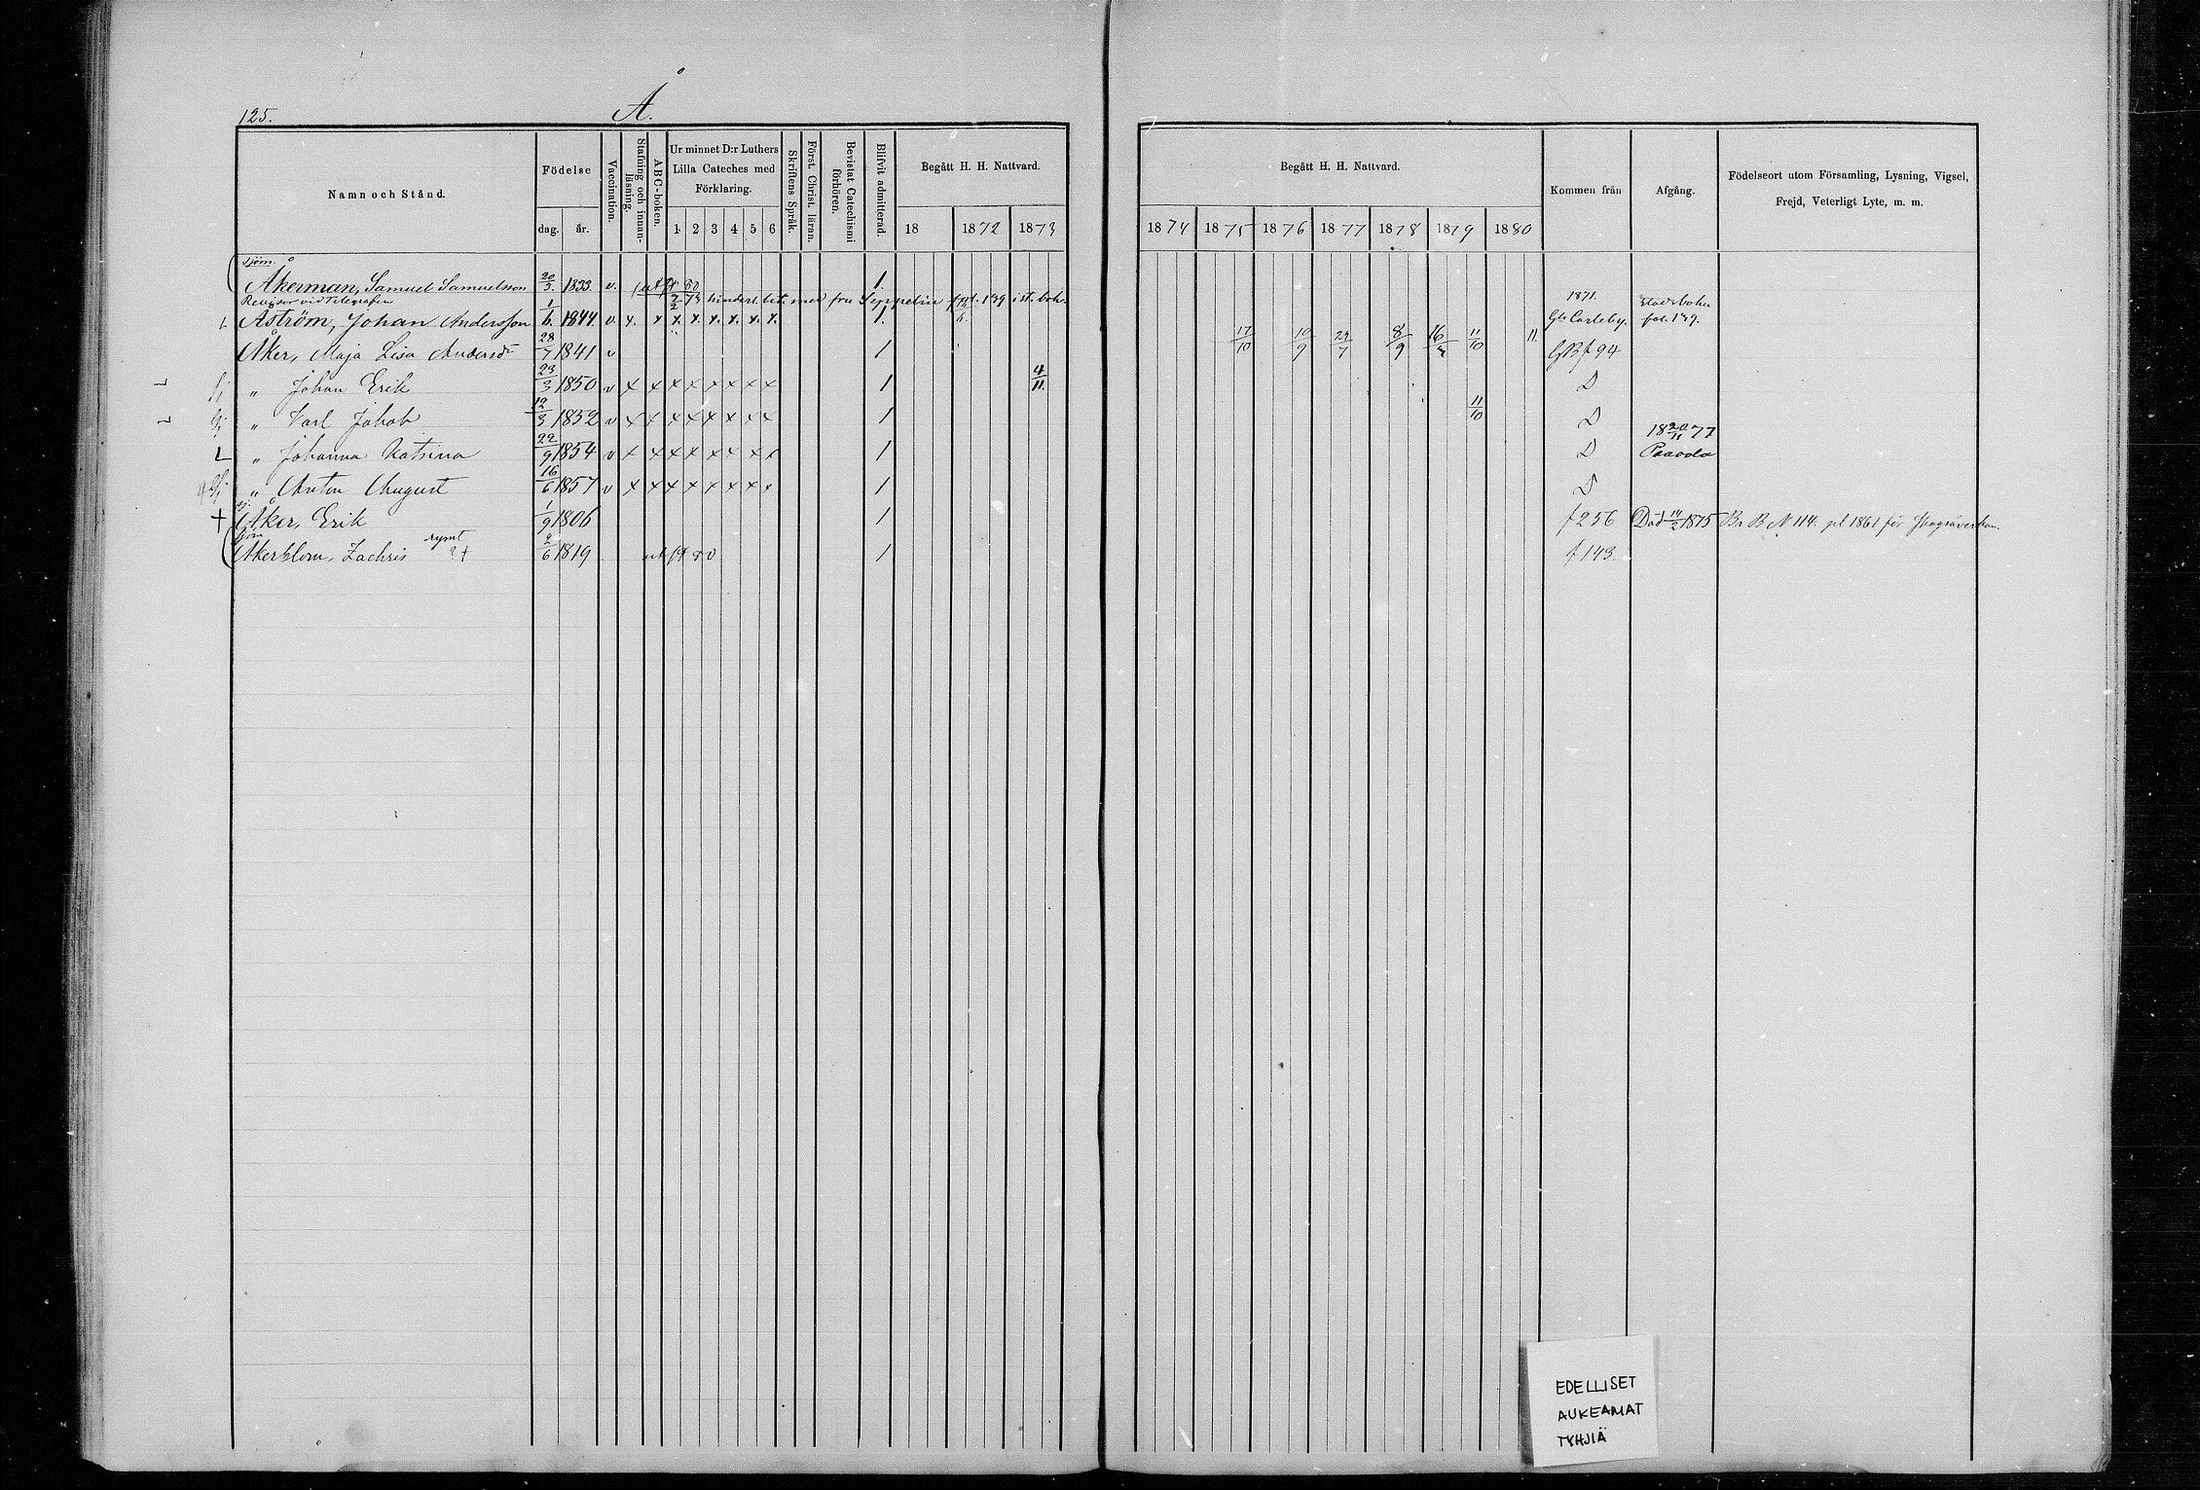 125.
Å.
Namn och Stånd.
Födelse
dag. år.
Vaccination.
Stafning och innan-läsning.
ABC-boken.
Ur minnet D:r Luthers
Lilla Cateches med
Förklaring.
1 2 3 4 5 6
Skriftens Språk.
Först. Christ. läran.
Bevistat Catechismi förhören.
Blifvit admitterad.
Begått H. H. Nattvard.
18 1872 1873
Begått H. H. Nattvard.
1874 1875 1876 1877 1878 1879 1880
Kommen från
Afgång.
Födelseort utom Församling, Lysning, Vigsel,
Frejd, Veterligt Lyte, m. m.
Sjöm.
Åkerman, Samuel Samuelsson 20/3. 1833. v. 1.
Revisor vid Telegrafen 7/2 73 hinderl. bet. med fru Seppelin fol. 139 i st. bok.
Åström, Johan Andersson 1/6. 1844. v. x. x x. x. x. x. x. x. 1. 1871. Gla Carleby. Stadsboken fol. 139.
Åker, Maja Lisa Andersdr 28/7 1841 v 1 17/10 10/9 29/7 8/9 16/3 11/10 11. GB f 94
" Johan Erik 23/3 1850 v x x x x x x x x 1 4/11. D
" Karl Jakob 12/3 1852 v x x x x x x x x 1 11/10 D
" Johanna Katrina 22/9 1854 v x x x x x x x x 1 D 18 20/11 77 Paavola
" Anton August 16/6 1857 v x x x x x x x x 1 D
+ Åker, Erik 1/9 1806 1 f 256 Död 14/2 1875 Br B N 114. pl 1861 för Skogsåverkan
Åkerblom, Zachris rymt 2/6 1819 ut fr 50 1 f 143.
EDELLISET
AUKEAMAT
TYHJIÄ